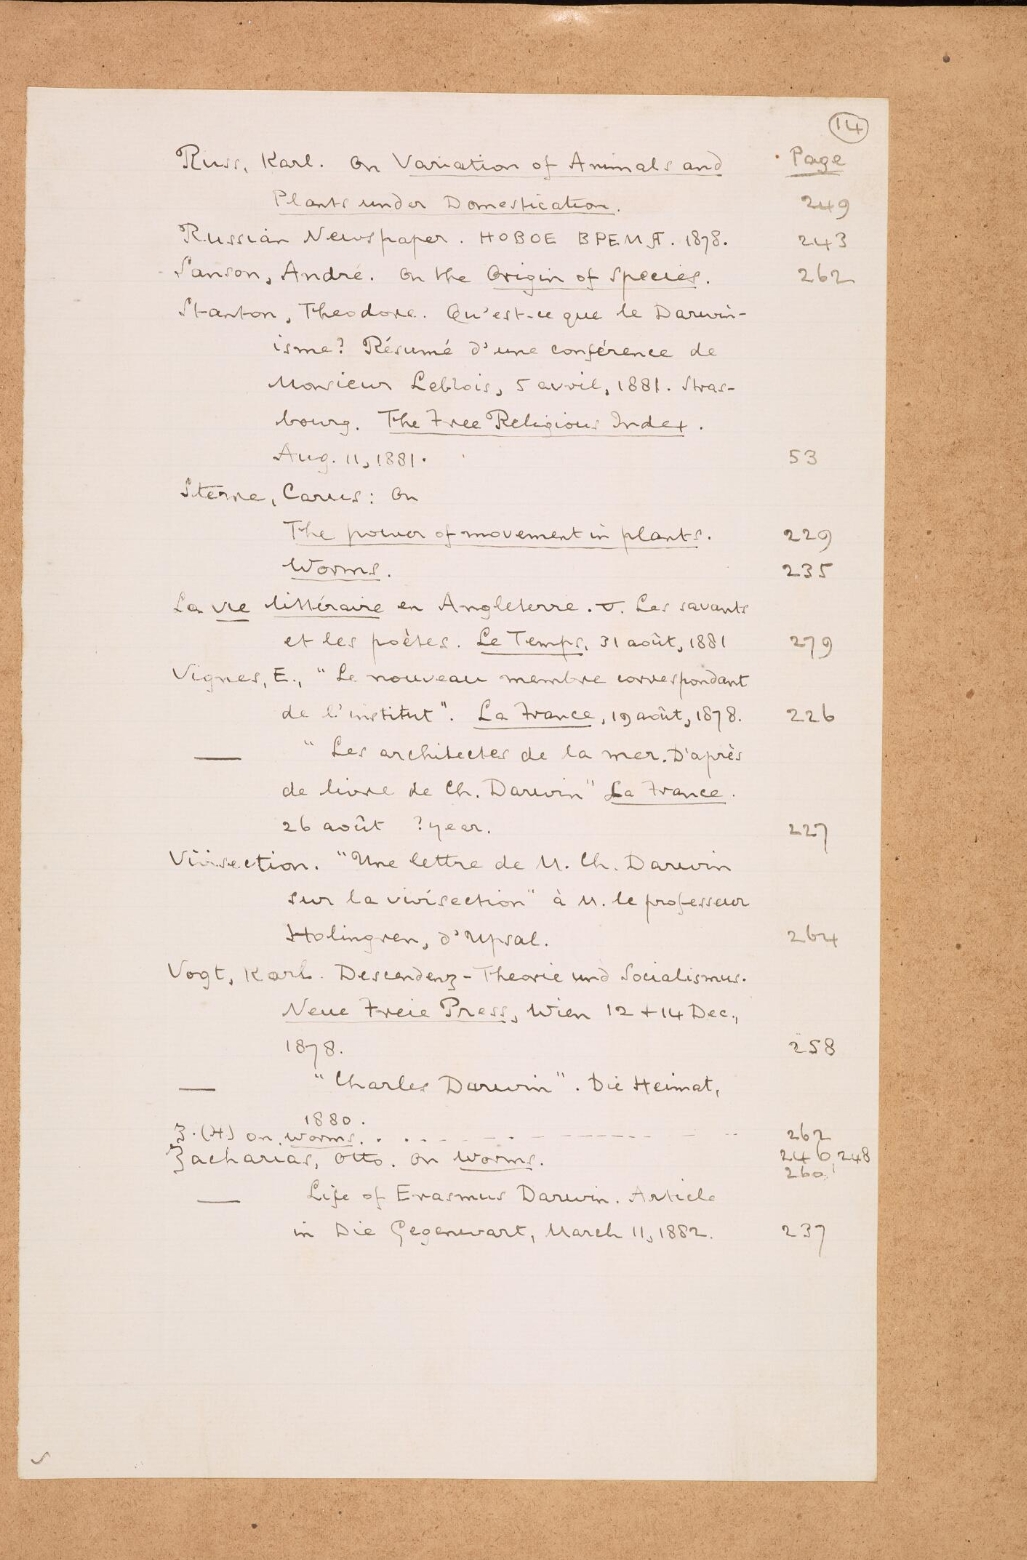 14
Russ, Karl. On Variation of Animals and Page
Plants under Domestication. 249
Russian Newspaper. НОВОЕ ВРЕМЯ. 1878. 243
Sanson, André. On the Origin of Species. 262
Stanton, Theodore. Qu'est-ce que le Darwin-
isme? Résumé d'une conférence de
Monsieur Leblois, 5 avril, 1881. Stras-
bourg. The Free Religious Index.
Aug. 11, 1881. 53
Sterne, Carus: On
The power of movement in plants. 229
Worms. 235
La vie littéraire en Angleterre. V. Les savants
et les poètes. Le Temps, 31 août, 1881 279
Vignes, E., "Le nouveau membre correspondant
de l'institut". La France, 19 août, 1878. 226
— "Les architectes de la mer. D'après
de livre de Ch. Darwin" La France.
26 août ?year. 227
Vivisection. "Une lettre de M. Ch. Darwin
sur la vivisection" à M. le professeur
Holingren, d'Upsal. 264
Vogt, Karl. Descendenz-Theorie und Socialismus.
Neue Freie Press, Wien 12 + 14 Dec.,
1878. 258
— "Charles Darwin". Die Heimat,
1880.
Z. (H) on worms. 262
Zacharias, Otto. On Worms. 246 248
260
— Life of Erasmus Darwin. Article
in Die Gegenwart, March 11, 1882. 237